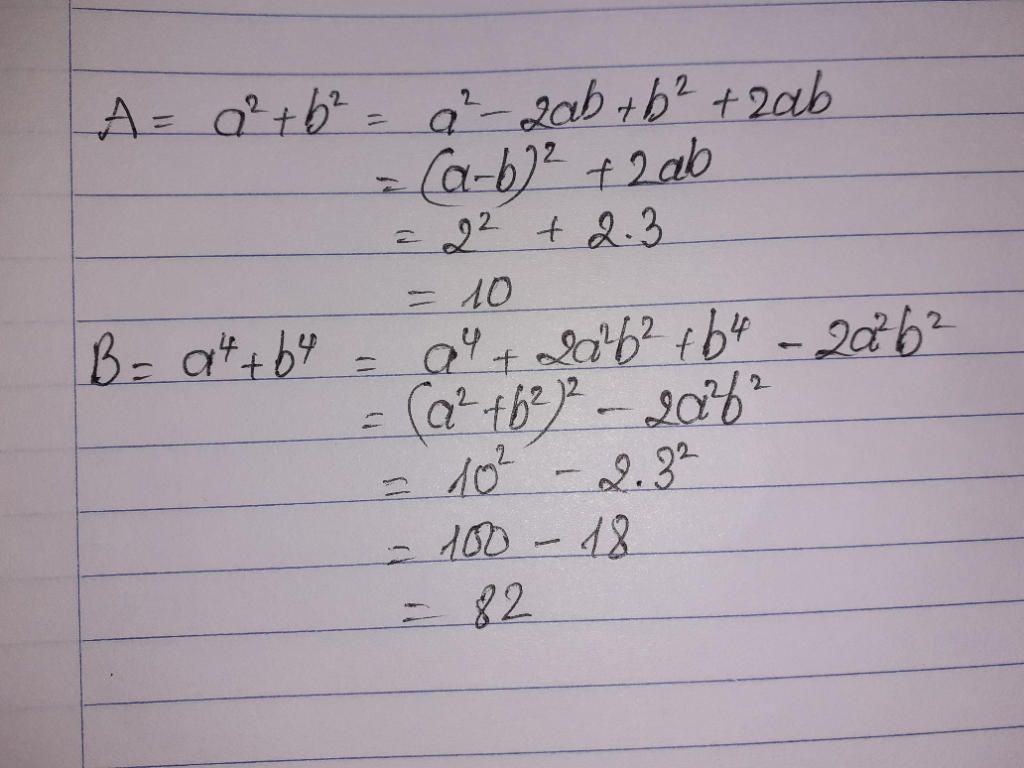 A = a² + b² = a² - 2ab + b² + 2ab
= (a-b)² + 2ab
= 2² + 2.3
= 10
B = a⁴ + b⁴ = a⁴ + 2a²b² + b⁴ - 2a²b²
= (a² + b²)² - 2a²b²
= 10² - 2.3²
= 100 - 18
= 82